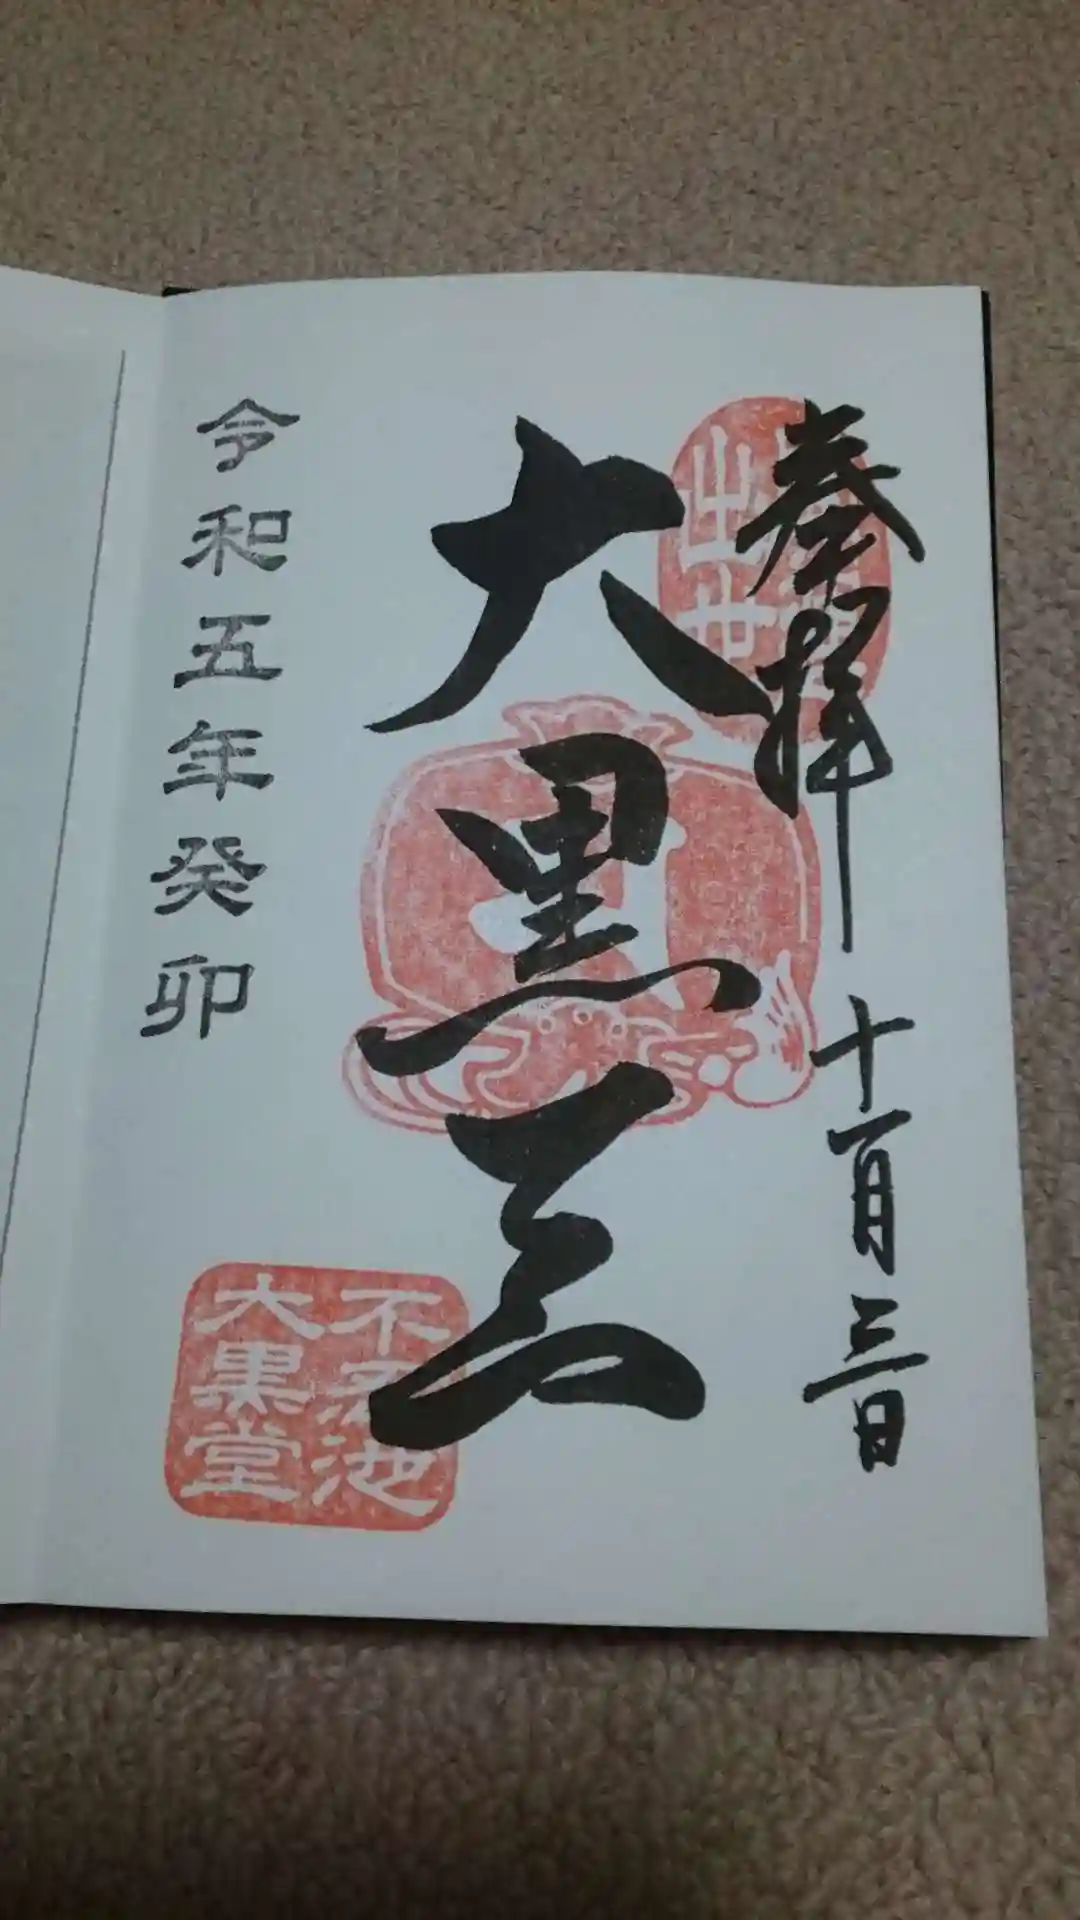 奉拝 十一月三日
大黒天
令和五年癸卯
不忍池
大黒堂